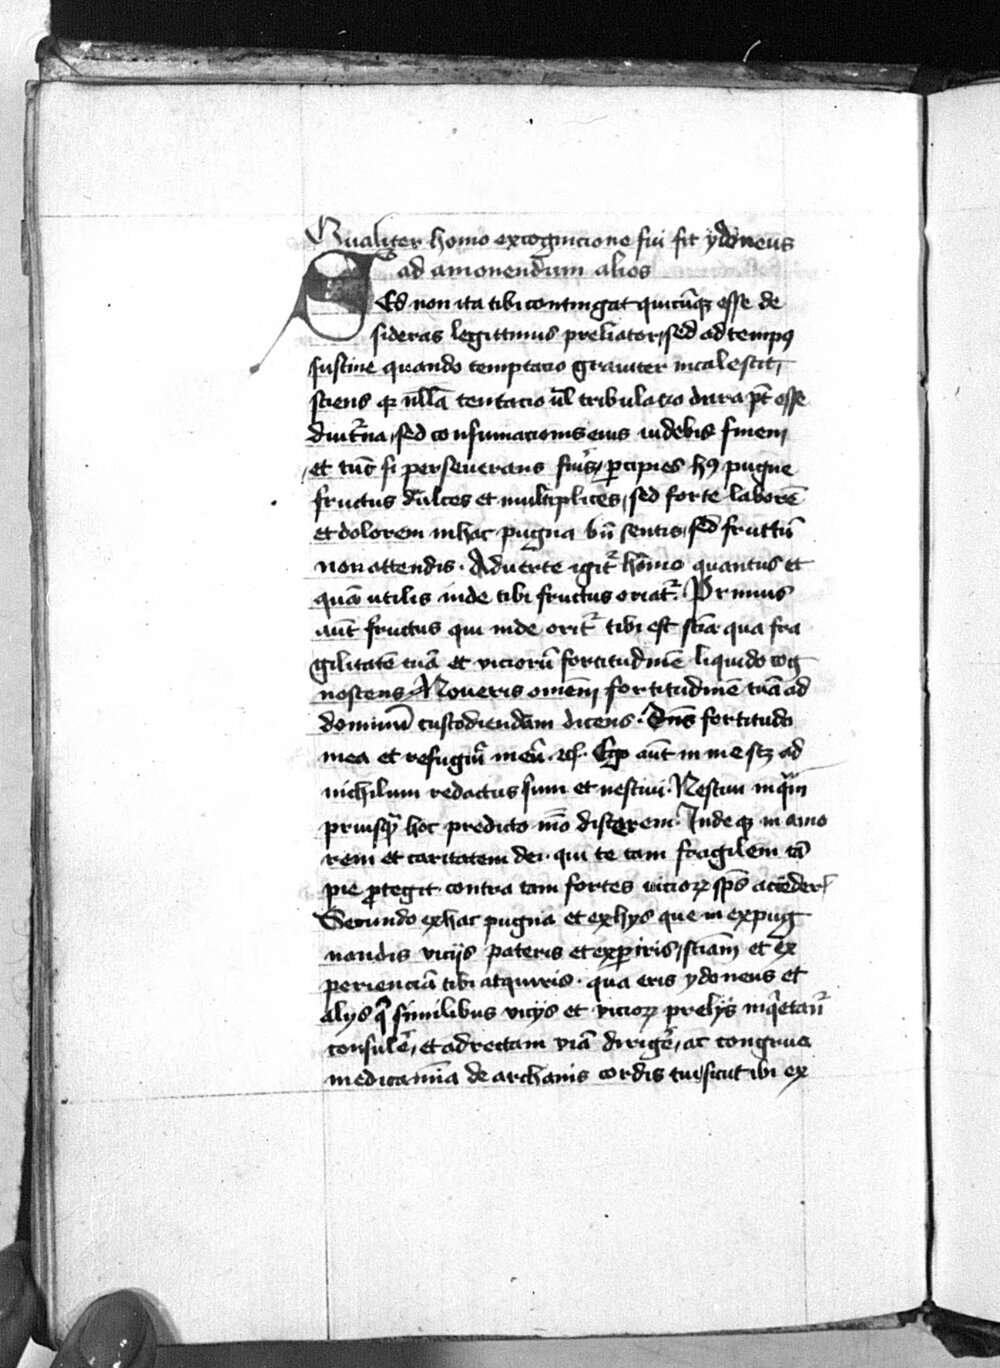 Qualiter homo ex cognicione sui fit ydoneus
ad amonendum alios
Sed non ita tibi contingat quicūqꝫ esse de
sideras legittimus preliator, sed ad tempꝰ
sustine quando temptacio grauiter incalescit,
sciens ꝙ nulla tentacio ul̄ tribulatio dura pt̄ esse
diut̄na, sed consumacionis eius uidebis finem
et tūc si perseuerans fuīs, ꝑcipies hꝰ pugne
fructus dulces et multiplices, sed forte laborē
et dolorem in hac pugna bn̄ sentis, sed fructū
non attendis. Aduerte igit᷑ homo quantus et
quā utilis inde tibi fructus oriat᷑. Primus
aūt fructus qui inde orit᷑ tibi est scīa qua fra
gilitatē tuā et viciorū fortitudinē liquido cog
noscens. Noueris omēm fortitudinē tuā ad
dominū custodiendam dicens. Dn̄s fortitudo
mea et refugiū meū. Ego aūt in me sꝫ ad
nichilum redactus sum et nesciui. Nesciui inquā
priusqꝫ hoc predicto mō discerem. Inde qꝫ in amo
rem et caritatem dei. qui te tam fragilem tā
pie ꝓtegit contra tam fortes vicioꝝ sp̄s accēder᷑
Secundo ex hac pugna et ex hys que in expug
nandis vicijs pateris et exꝑiris, sciam̄ et ex
perienciā tibi acquiris. qua eris ydoneus et
alys similibus vicijs et vicioꝝ prelijs inqietatū
consulē, et ad rectam viā dirigē, ac congrua
medicamīa de archanis cordis tui, sicut ibi ex